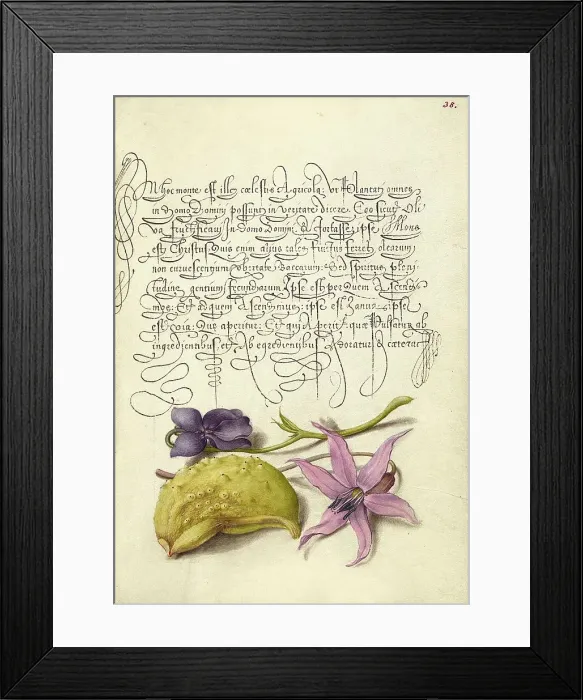 38.
hoc monte est ille cœlestis Agricola: ut Plantati omnes
in Domo Domini possunt in veritate dicere. Ego sicut Oli
va fructificavi In Domo Domini: & fortasse ipse Mons
est Christus. Quis enim alius tales fructus ferret olearum
non curvescentium ubertate Baccarum: Sed spiritus pleni
tudine gentium fecundarum. Ipse est per quem Ascendi
mus: Et ad quem Ascendimus: ipse est Ianua: ipse
est via: Quæ aperitur: Et qui Aperit: quæ Pulsatur ab
ingredientibus, et Ab egredientibus &cætera